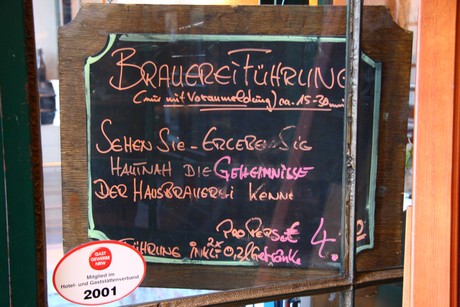 BRAUEREIFÜHRUNG
(nur mit Voranmeldung) ca. 15-30 min
SEHEN SIE - ERLEBEN SIE
HAUTNAH DIE GEHEIMNISSE
DER HAUSBRAUEREI KENNE
PRO PERS € 4.
FÜHRUNG INKL. 2x 0,2l Getränke
GAST
GEWERBE
NRW
Mitglied im
Hotel- und Gaststättenverband
2001